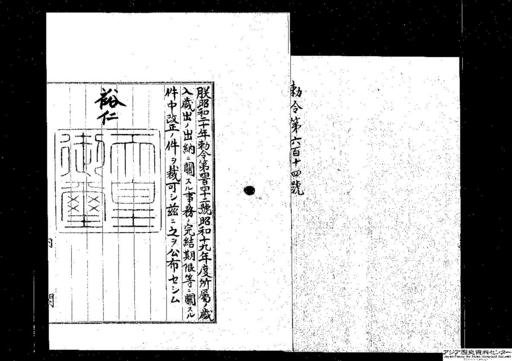 勅令第六百十四號
朕昭和二十年勅令第四百四十二號昭和十九年度所屬ノ歳
入歳出ノ出納ニ關スル事務ノ完結期限等ニ關スル
件中改正ノ件ヲ裁可シ茲ニ之ヲ公布セシム
裕仁
天皇
御璽
アジア歴史資料センター